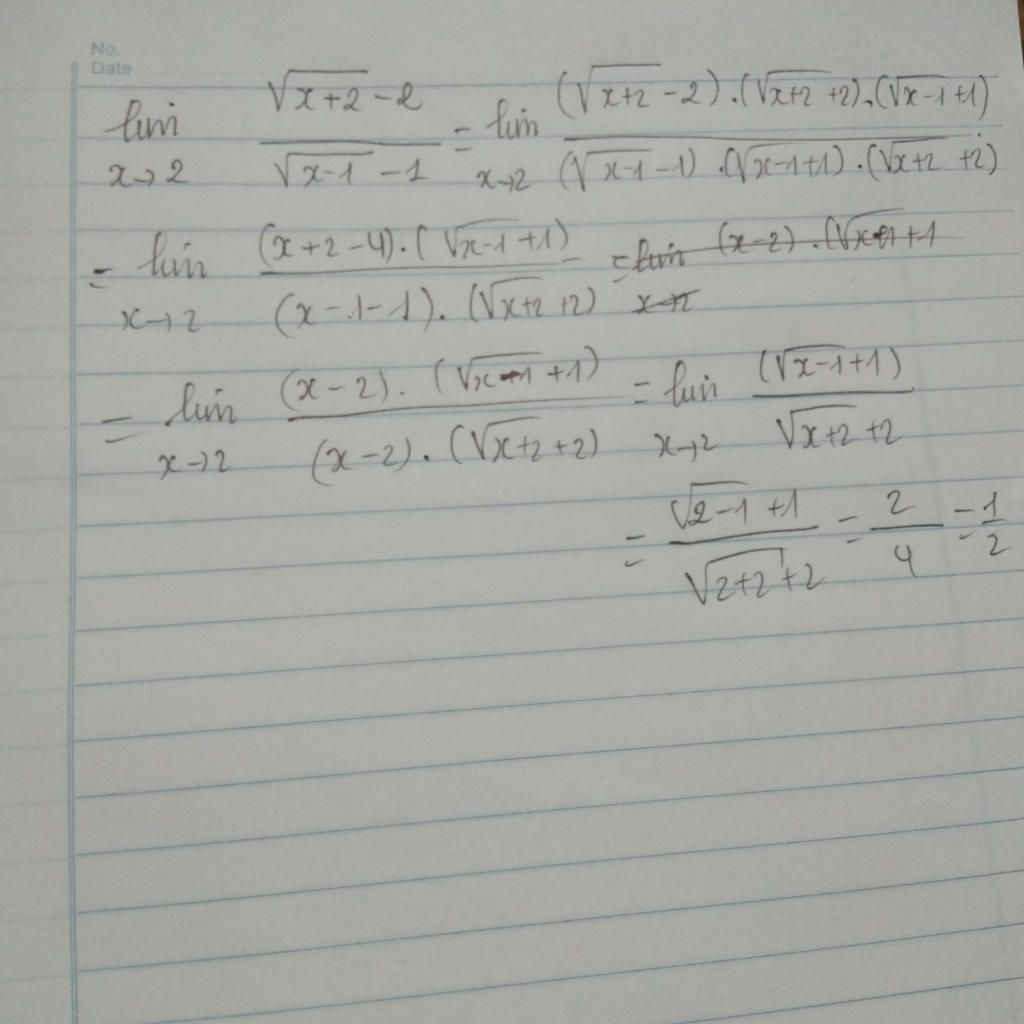 No.
Date
lim x→2 (√(x+2) - 2)/(√(x-1) - 1) = lim x→2 ((√(x+2) - 2).(√(x+2) + 2).(√(x-1) + 1))/((√(x-1) - 1).(√(x-1) + 1).(√(x+2) + 2))
= lim x→2 ((x+2-4).(√(x-1) + 1))/((x-1-1).(√(x+2) + 2)) = lim x→2 (x-2).(√(x-1) + 1
= lim x→2 ((x-2).(√(x-1) + 1))/((x-2).(√(x+2) + 2)) = lim x→2 (√(x-1) + 1)/(√(x+2) + 2)
= (√(2-1) + 1)/(√(2+2) + 2) = 2/4 = 1/2